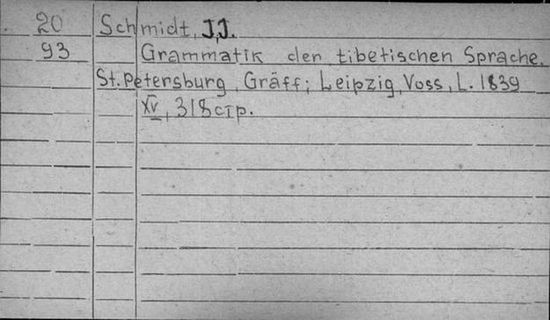 20 Schmidt, J.J.
93 Grammatik den tibetischen Sprache.
St. Petersburg, Gräff; Leipzig, Voss, L. 1839
XV, 318 стр.